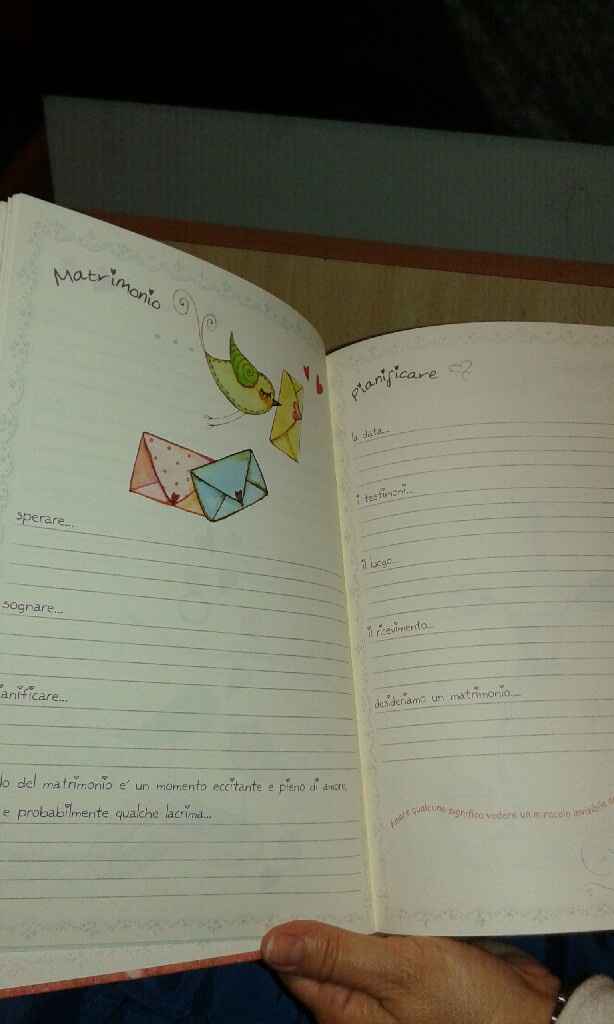 Matrimonio
sperare...
sognare...
ianificare...
do del matrimonio e' un momento eccitante e pieno di amore,
e probabilmente qualche lacrima...
Pianificare
la data...
i testimoni...
il luogo...
il ricevimento...
desideriamo un matrimonio....
Amare qualcuno significa vedere un miracolo invisibile